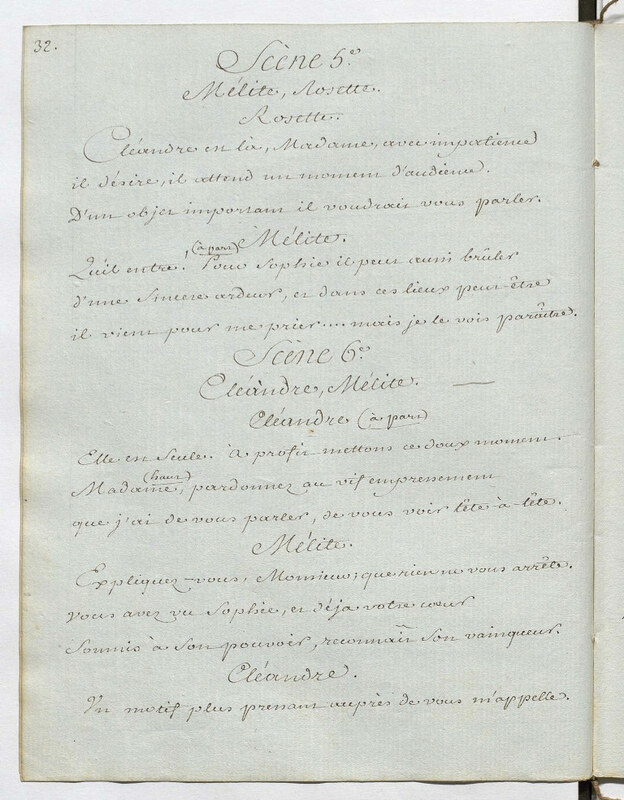 32.
Scène 5e
Mélite, Rosette.
Rosette.
Cléandre est là, Madame, avec impatience
il désire, il attend un moment d'audience.
D'un objet important il voudrait vous parler.
(à part) Mélite.
Qu'il entre! Pour Sophie il peut aussi brûler
d'une sincere ardeur, et dans ces lieux peut-être
il vient pour me prier.... mais je le vois paraître.
Scène 6e
Cléandre, Mélite.
Cléandre (à part)
Elle est seule. À profit mettons ce doux moment.
(haut)
Madame, pardonnez au vif empressement
que j'ai de vous parler, de vous voir tête-à-tête.
Mélite.
Expliquez-vous, Monsieur; que rien ne vous arrête.
Vous avez vu Sophie, et déja votre cœur
Soumis à son pouvoir, reconnaît son vainqueur.
Cléandre.
Un motif plus pressant auprès de vous m'appelle.